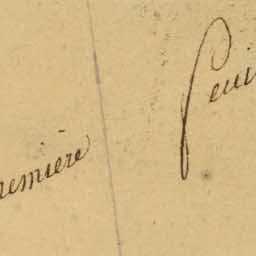 remière feui